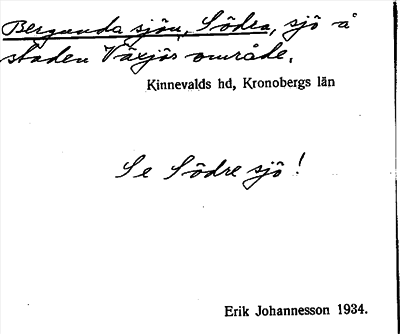 Bergunda sjön, Södra, sjö å
staden Växjös område.
Kinnevalds hd, Kronobergs län
Se Södre sjö!
Erik Johannesson 1934.